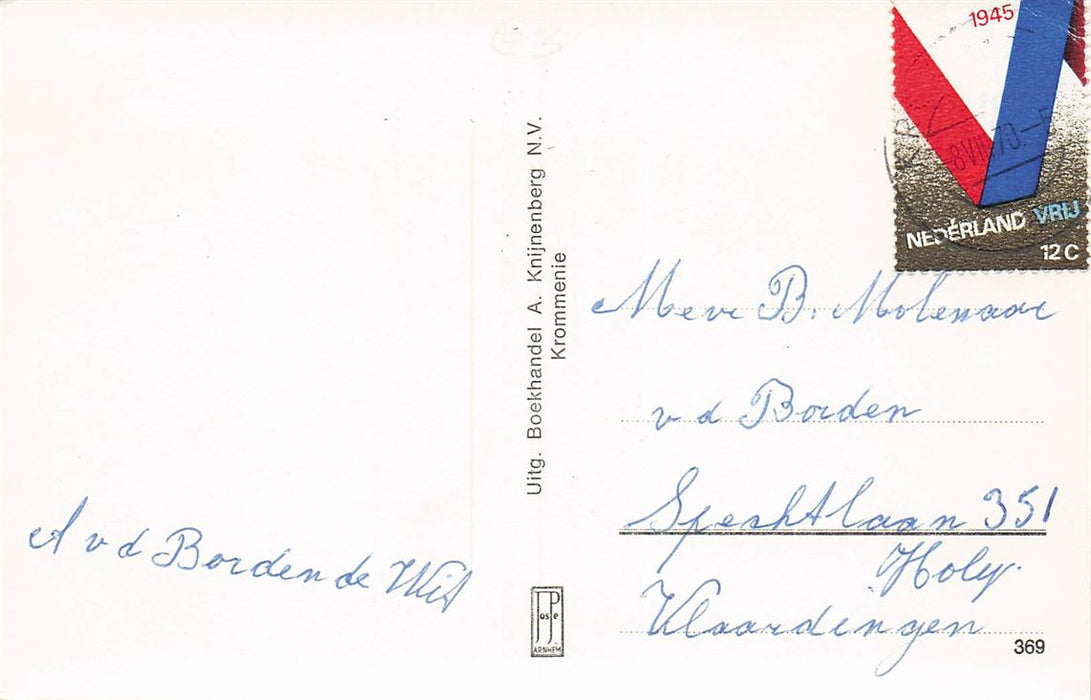 1945
8 VII. 70.
NEDERLAND VRIJ
12 C
Uitg. Boekhandel A. Knijnenberg N.V.
Krommenie
Mevr B. Molenaar
v d Borden
Spechtlaan 351
Holy.
Vlaardingen
A v d Borden de Wit
JosPe
ARNHEM
369